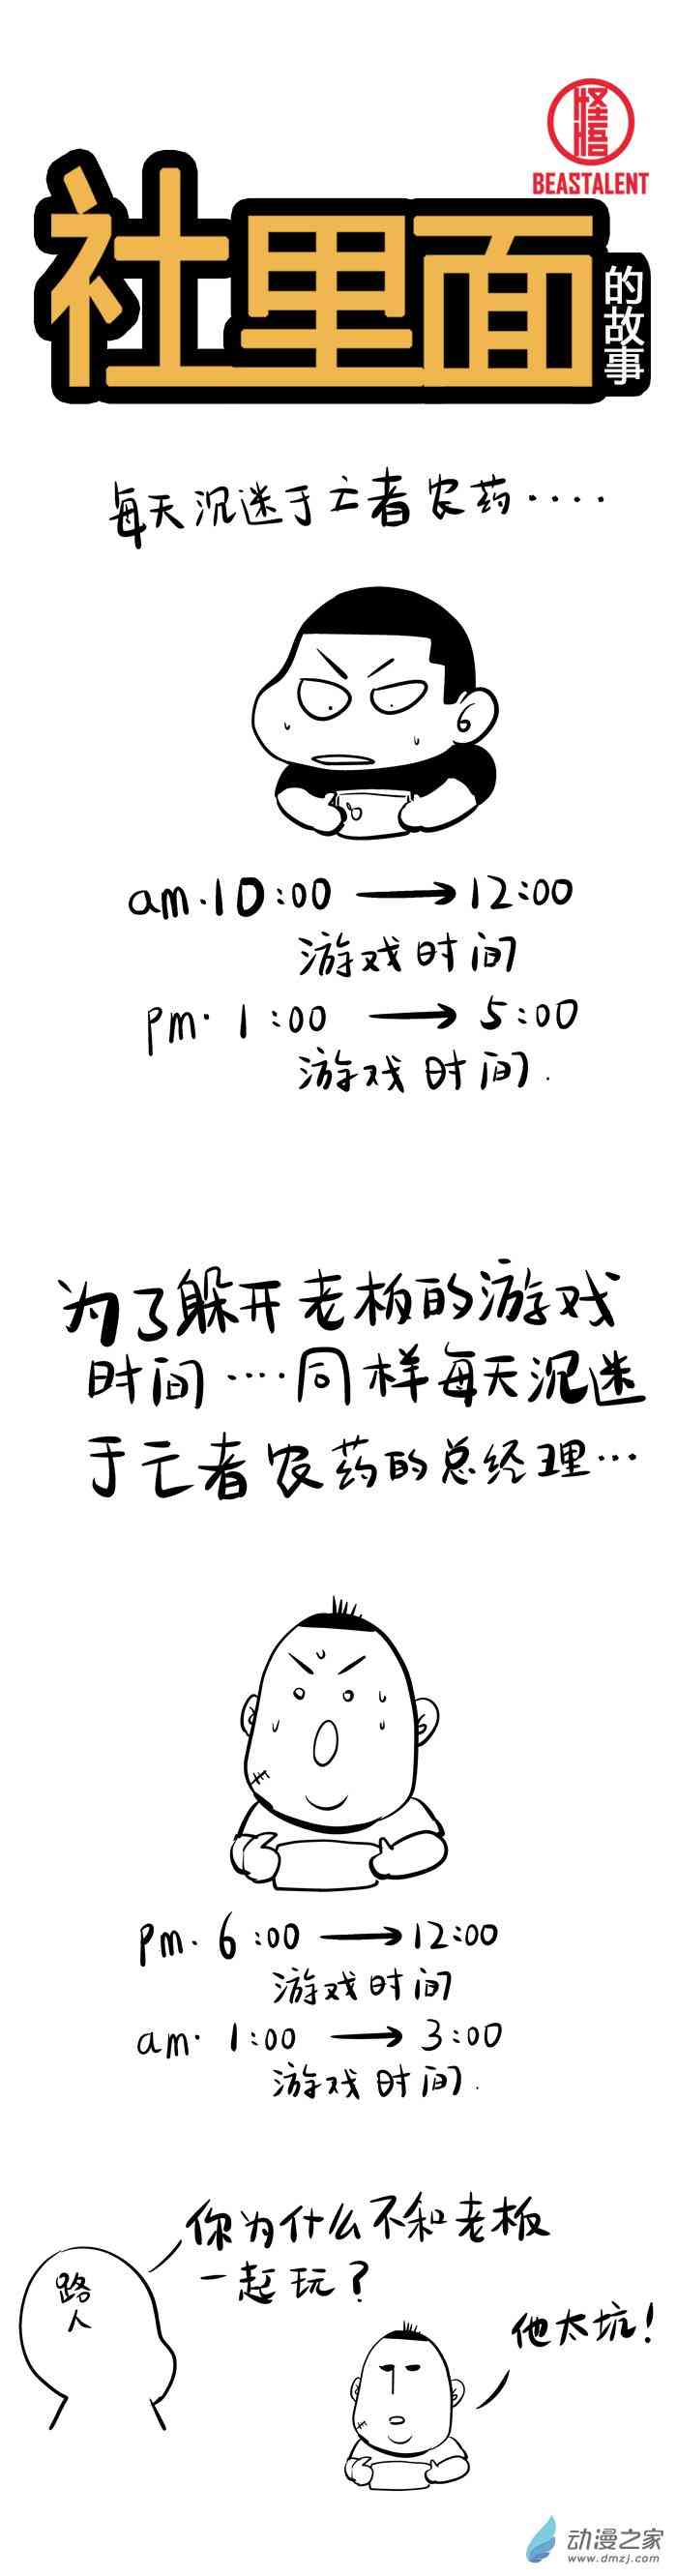 怪悟
BEASTALENT
社里面
的故事
每天沉迷于亡者农药....
am.10:00 → 12:00
游戏时间
pm. 1:00 → 5:00
游戏时间.
为了躲开老板的游戏
时间....同样每天沉迷
于亡者农药的总经理...
pm. 6:00 → 12:00
游戏时间
am. 1:00 → 3:00
游戏时间.
你为什么不和老板
一起玩?
路
人
他太坑!
动漫之家
www.dmzj.com